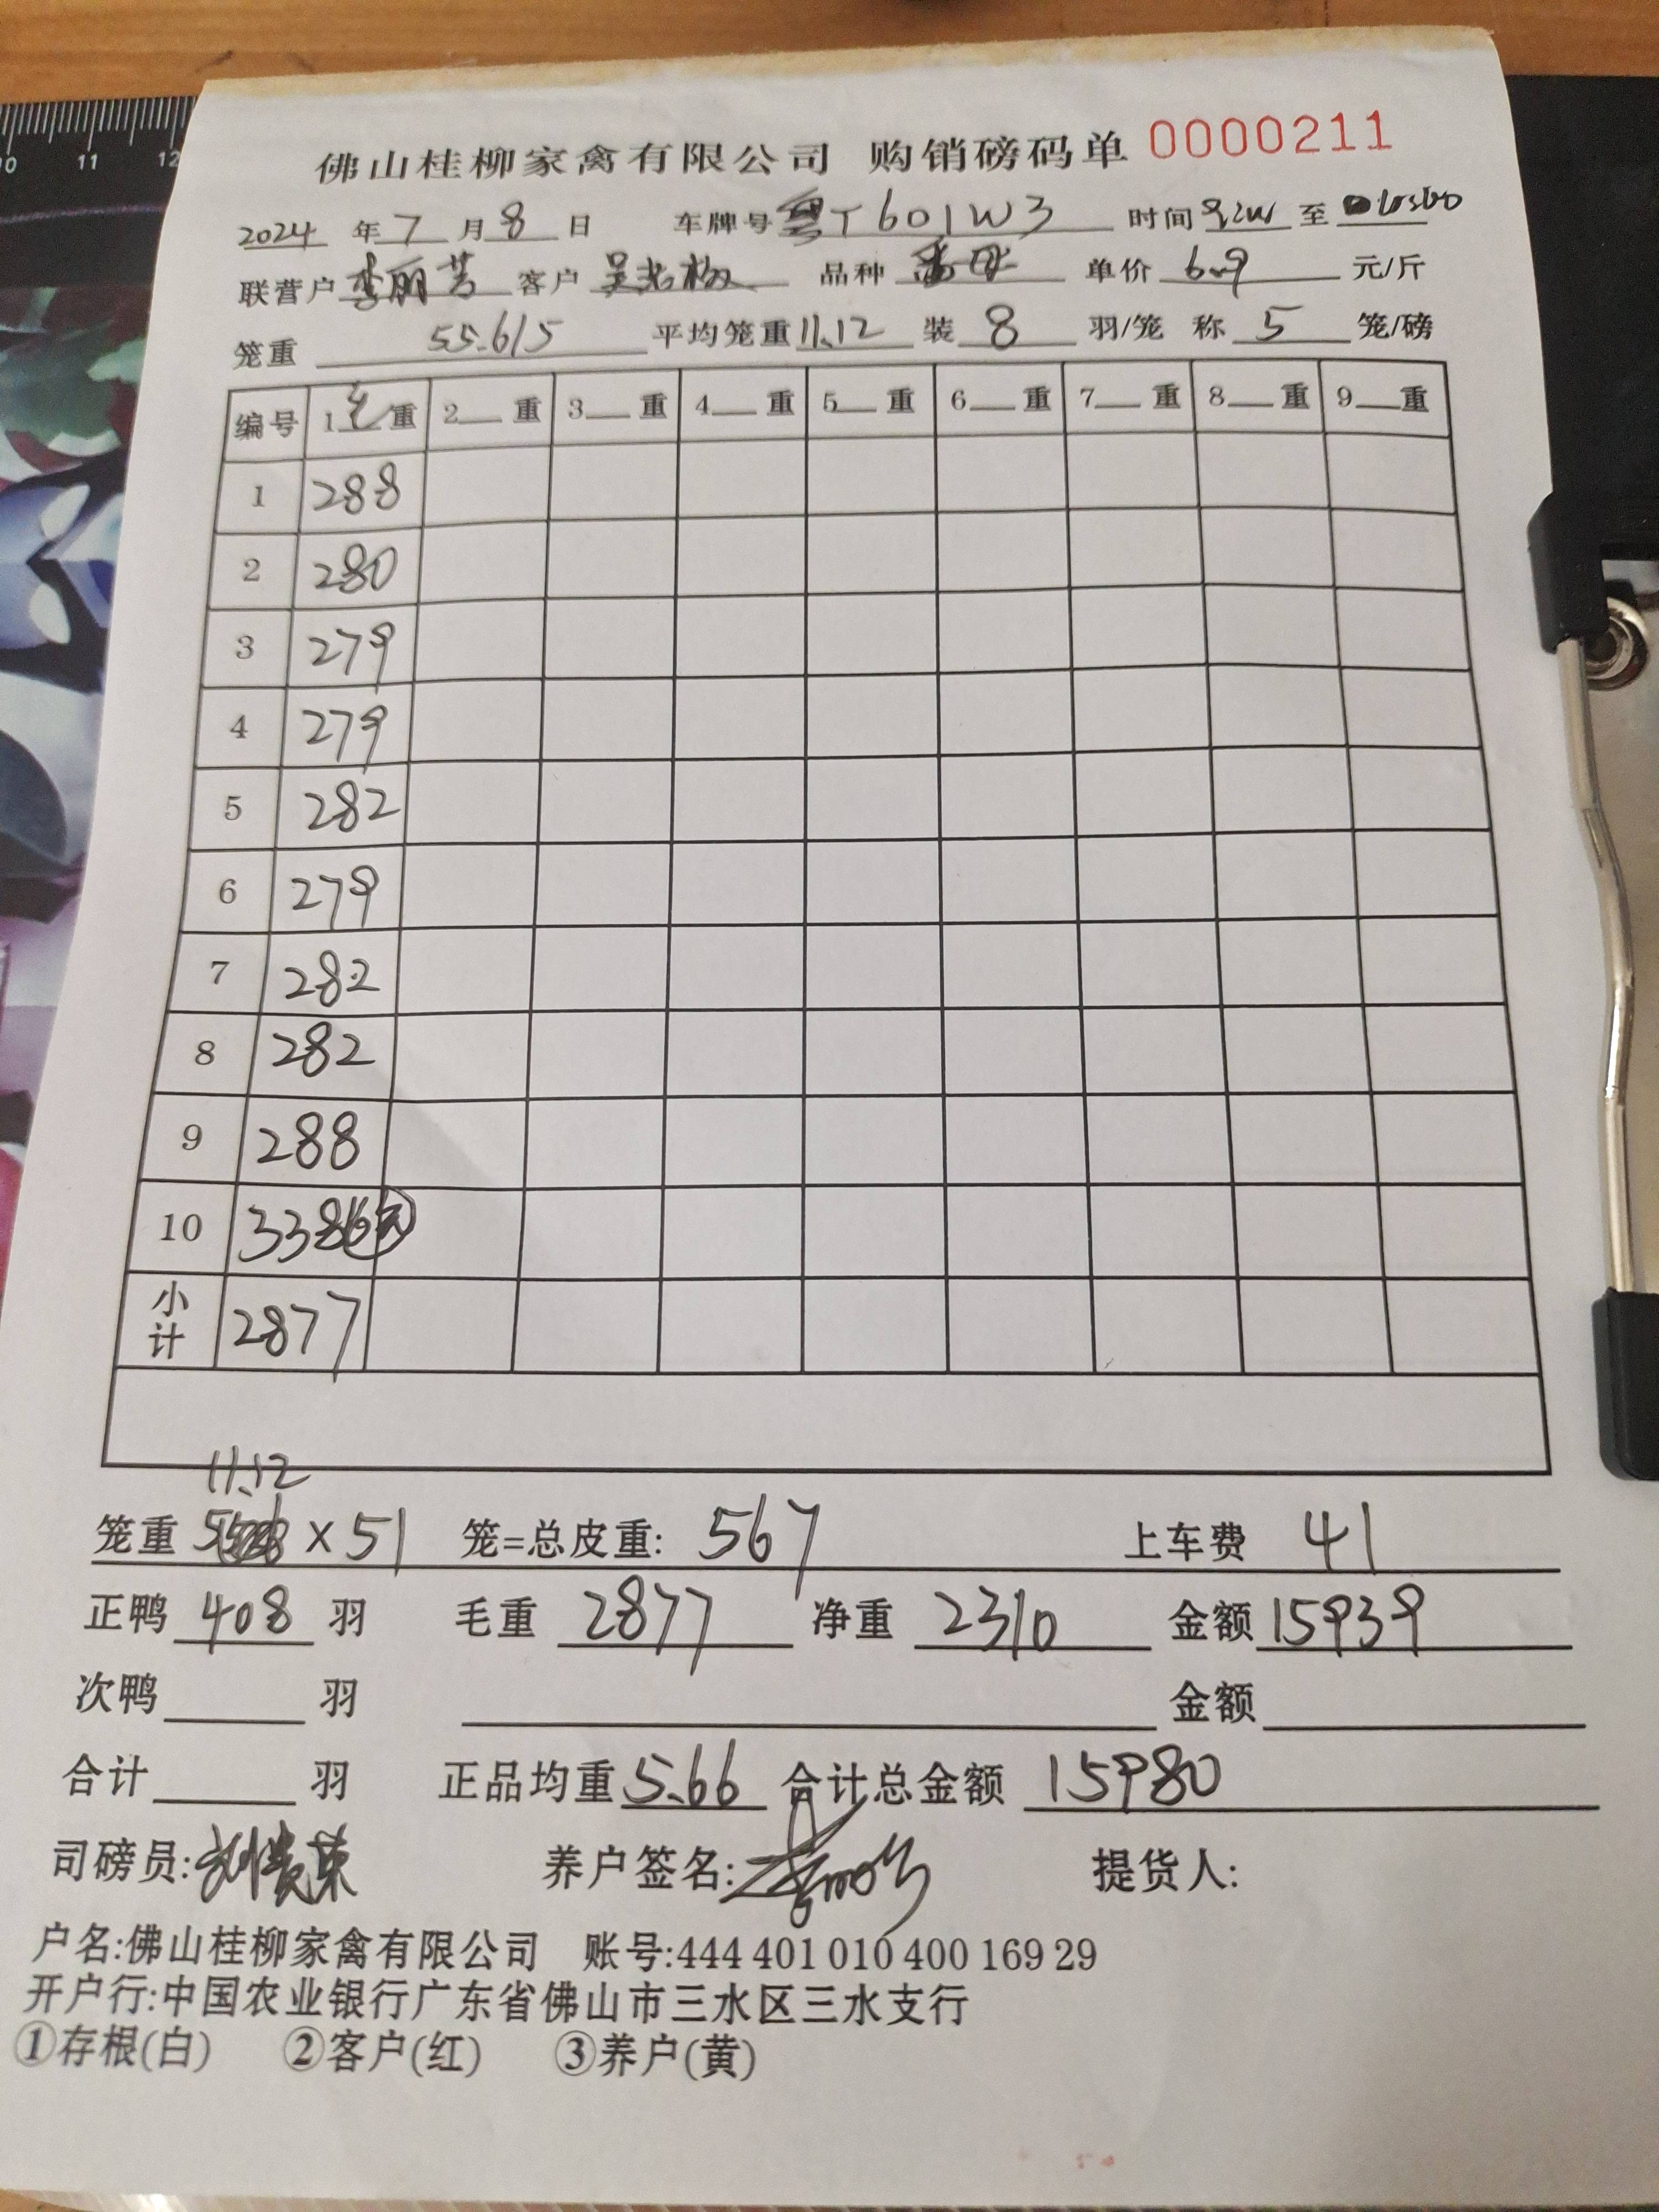 佛山桂柳家禽有限公司 购销磅码单 0000211
2024 年 7 月 8 日 车牌号 粤T601W3 时间 至
联营户 李丽芳 客户 吴老板 品种 番母 单价 6.9 元/斤
笼重 55.6/5 平均笼重 11.12 装 8 羽/笼 称 5 笼/磅
编号 1 毛 重 2 重 3 重 4 重 5 重 6 重 7 重 8 重 9 重
1 288
2 280
3 279
4 279
5 282
6 279
7 282
8 282
9 288
10 338 6
小计 2877
11.12
笼重 × 51 笼=总皮重: 567 上车费 41
正鸭 408 羽 毛重 2877 净重 2310 金额 15939
次鸭 羽 金额
合计 羽 正品均重 5.66 合计总金额 15980
司磅员: 养户签名: 提货人:
户名:佛山桂柳家禽有限公司 账号:444 401 010 400 169 29
开户行:中国农业银行广东省佛山市三水区三水支行
①存根(白) ②客户(红) ③养户(黄)
10 11 12